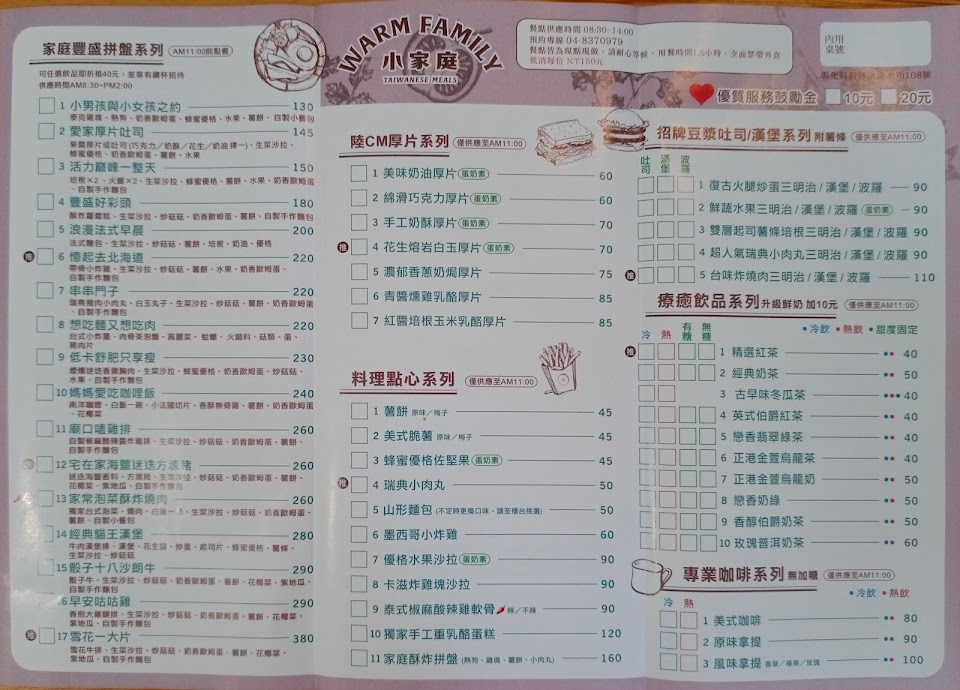 家庭豐盛拼盤系列 AM11:00前點餐
可任選飲品即折抵40元，並享有續杯招待
供應時間AM8:30~PM2:00
1 小男孩與小女孩之約 130
麥克雞塊、熱狗、奶香歐姆蛋、蜂蜜優格、水果、薯餅、自製小餐包
2 愛家厚片吐司 145
果醬厚片或吐司(巧克力／奶酥／花生／奶油 擇一)、生菜沙拉、
蜂蜜優格、奶香歐姆蛋、薯餅、水果
3 活力巔峰一整天 150
培根×2、火腿×2、生菜沙拉、蜂蜜優格、薯餅、水果、奶香歐姆蛋
、自製手作麵包
4 豐盛好彩頭 180
酥炸蘿蔔糕、生菜沙拉、炒菇菇、奶香歐姆蛋、薯餅、自製手作麵包
5 浪漫法式早晨 200
法式麵包、生菜沙拉、炒菇菇、薯餅、培根、奶油、優格
推 6 憶起去北海道 220
帶骨小炸雞、生菜沙拉、炒菇菇、薯餅、水果、奶香歐姆蛋、
、自製手作麵包
7 串串門子 220
瑞典豬肉小肉丸、白玉丸子、生菜沙拉、炒菇菇、薯餅、奶香歐姆蛋
、自製手作麵包
8 想吃麵又想吃肉 220
台式小炸雞、肉骨茶泡麵、高麗菜、蛤蠣、火鍋料、菇類、蛋、
豬肉片
9 低卡舒肥只享瘦 230
煙燻迷迭香雞胸肉、生菜沙拉、蜂蜜優格、奶香歐姆蛋、炒菇菇、
水果、自製手作麵包
10 媽媽愛吃咖哩飯 240
南洋咖哩、白飯一碗、小法國切片、香酥無骨雞、薯餅、奶香歐姆蛋
、花椰菜
11 廟口嗑雞排 260
自製椒麻酸辣醬炸雞排、生菜沙拉、炒菇菇、奶香歐姆蛋、薯餅、
自製手作麵包
推 12 宅在家海鹽迷迭方塊豬 260
迷迭海鹽香料、方塊豬、生菜沙拉、炒菇菇、奶香歐姆蛋、薯餅、
紫地瓜、自製手作麵包
13 家常泡菜酥炸燒肉 260
獨家台式泡菜、燒肉、白飯一碗、生菜沙拉、炒菇菇、奶香歐姆蛋、
薯餅、自製小餐包
14 經典貓王漢堡 280
牛肉漢堡排、漢堡、花生醬、炒蛋、起司片、蜂蜜優格、薯條、
生菜沙拉、炒菇菇
15 骰子十八沙朗牛 290
骰子牛、生菜沙拉、炒菇菇、奶香歐姆蛋、薯餅、花椰菜、紫地瓜、
自製手作麵包
16 早安咕咕雞 290
香煎大雞腿排、生菜沙拉、炒菇菇、奶香歐姆蛋、薯餅、花椰菜、
紫地瓜、自製手作麵包
推 17 雪花一大片 380
雪花牛排、生菜沙拉、炒菇菇、奶香歐姆蛋、薯餅、花椰菜、
紫地瓜、自製手作麵包
WARM FAMILY
小家庭
TAIWANESE MEALS
陸CM厚片系列 僅供應至AM11:00
1 美味奶油厚片 蛋奶素 60
2 綿滑巧克力厚片 蛋奶素 60
3 手工奶酥厚片 蛋奶素 70
推 4 花生熔岩白玉厚片 蛋奶素 70
5 濃郁香蔥奶焗厚片 75
6 青醬燻雞乳酪厚片 85
7 紅醬培根玉米乳酪厚片 85
料理點心系列 僅供應至AM11:00
1 薯餅 原味／梅子 45
2 美式脆薯 原味／梅子 45
3 蜂蜜優格佐堅果 蛋奶素 45
推 4 瑞典小肉丸 50
5 山形麵包 (不定時更換口味、請至櫃台挑選) 50
6 墨西哥小炸雞 60
7 優格水果沙拉 蛋奶素 90
8 卡滋炸雞塊沙拉 90
9 泰式椒麻酸辣雞軟骨 辣／不辣 90
10 獨家手工重乳酪蛋糕 120
11 家庭酥炸拼盤 (熱狗、雞塊、薯餅、小肉丸) 160
餐點供應時間 08:30~14:00
預約專線 04-8370979
餐點皆為現點現做，請耐心等候，用餐時間1.5小時，全面禁帶外食
低消每位 NT150元
內用
桌號
優質服務鼓勵金 10元 20元
招牌豆漿吐司/漢堡系列 附薯條 僅供應至AM11:00
吐司 漢堡 波羅
1 復古火腿炒蛋三明治/漢堡/波羅 90
2 鮮蔬水果三明治/漢堡/波羅 蛋奶素 90
3 雙層起司薯條培根三明治/漢堡/波羅 90
4 超人氣瑞典小肉丸三明治/漢堡/波羅 90
推 5 台味炸燒肉三明治/漢堡/波羅 110
療癒飲品系列 升級鮮奶 加10元 僅供應至AM11:00
冷 熱 有糖 無糖 •冷飲 •熱飲 •甜度固定
推 1 精選紅茶 •• 40
2 經典奶茶 •• 50
3 古早味冬瓜茶 ••• 40
4 英式伯爵紅茶 •• 40
5 戀香翡翠綠茶 •• 40
6 正港金萱烏龍茶 •• 40
7 正港金萱烏龍奶 •• 50
8 戀香奶綠 •• 50
9 香醇伯爵奶茶 •• 50
10 玫瑰普洱奶茶 •• 60
專業咖啡系列 無加糖 僅供應至AM11:00
冷 熱 •冷飲 •熱飲
1 美式咖啡 •• 80
2 原味拿提 •• 90
3 風味拿提 香草／榛果／玫瑰 •• 100